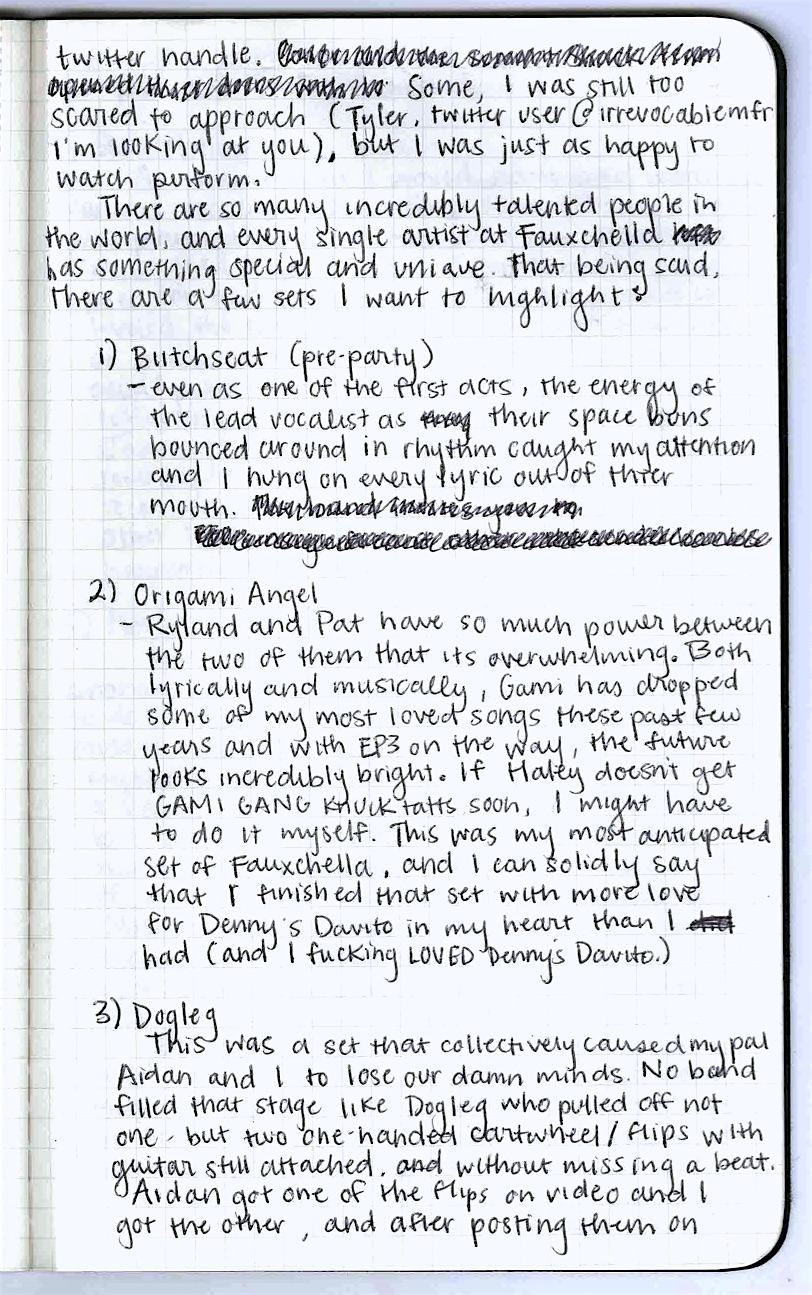 twitter handle.
Some, I was still too
scared to approach (Tyler, twitter user @irrevocablemfr
I'm looking at you), but I was just as happy to
watch perform.
There are so many incredibly talented people in
the world, and every single artist at Fauxchella
has something special and unique. That being said,
there are a few sets I want to highlight:
1) Buttchseat (pre-party)
- even as one of the first acts, the energy of
the lead vocalist as their space buns
bounced around in rhythm caught my attention
and I hung on every lyric out of thier
mouth.
2) Origami Angel
- Ryland and Pat have so much power between
the two of them that its overwhelming. Both
lyrically and musically, Gami has dropped
some of my most loved songs these past few
years and with EP3 on the way, the future
looks incredibly bright. If Haley doesn't get
GAMI GANG KNUCK tatts soon, I might have
to do it myself. This was my most anticipated
set of Fauxchella, and I can solidly say
that I finished that set with more love
for Denny's Davito in my heart than I
had (and I fucking LOVED Denny's Davito.)
3) Dogleg
This was a set that collectively caused my pal
Aidan and I to lose our damn minds. No band
filled that stage like Dogleg who pulled off not
one - but two one-handed cartwheel/flips with
guitar still attached, and without missing a beat.
Aidan got one of the flips on video and I
got the other, and after posting them on